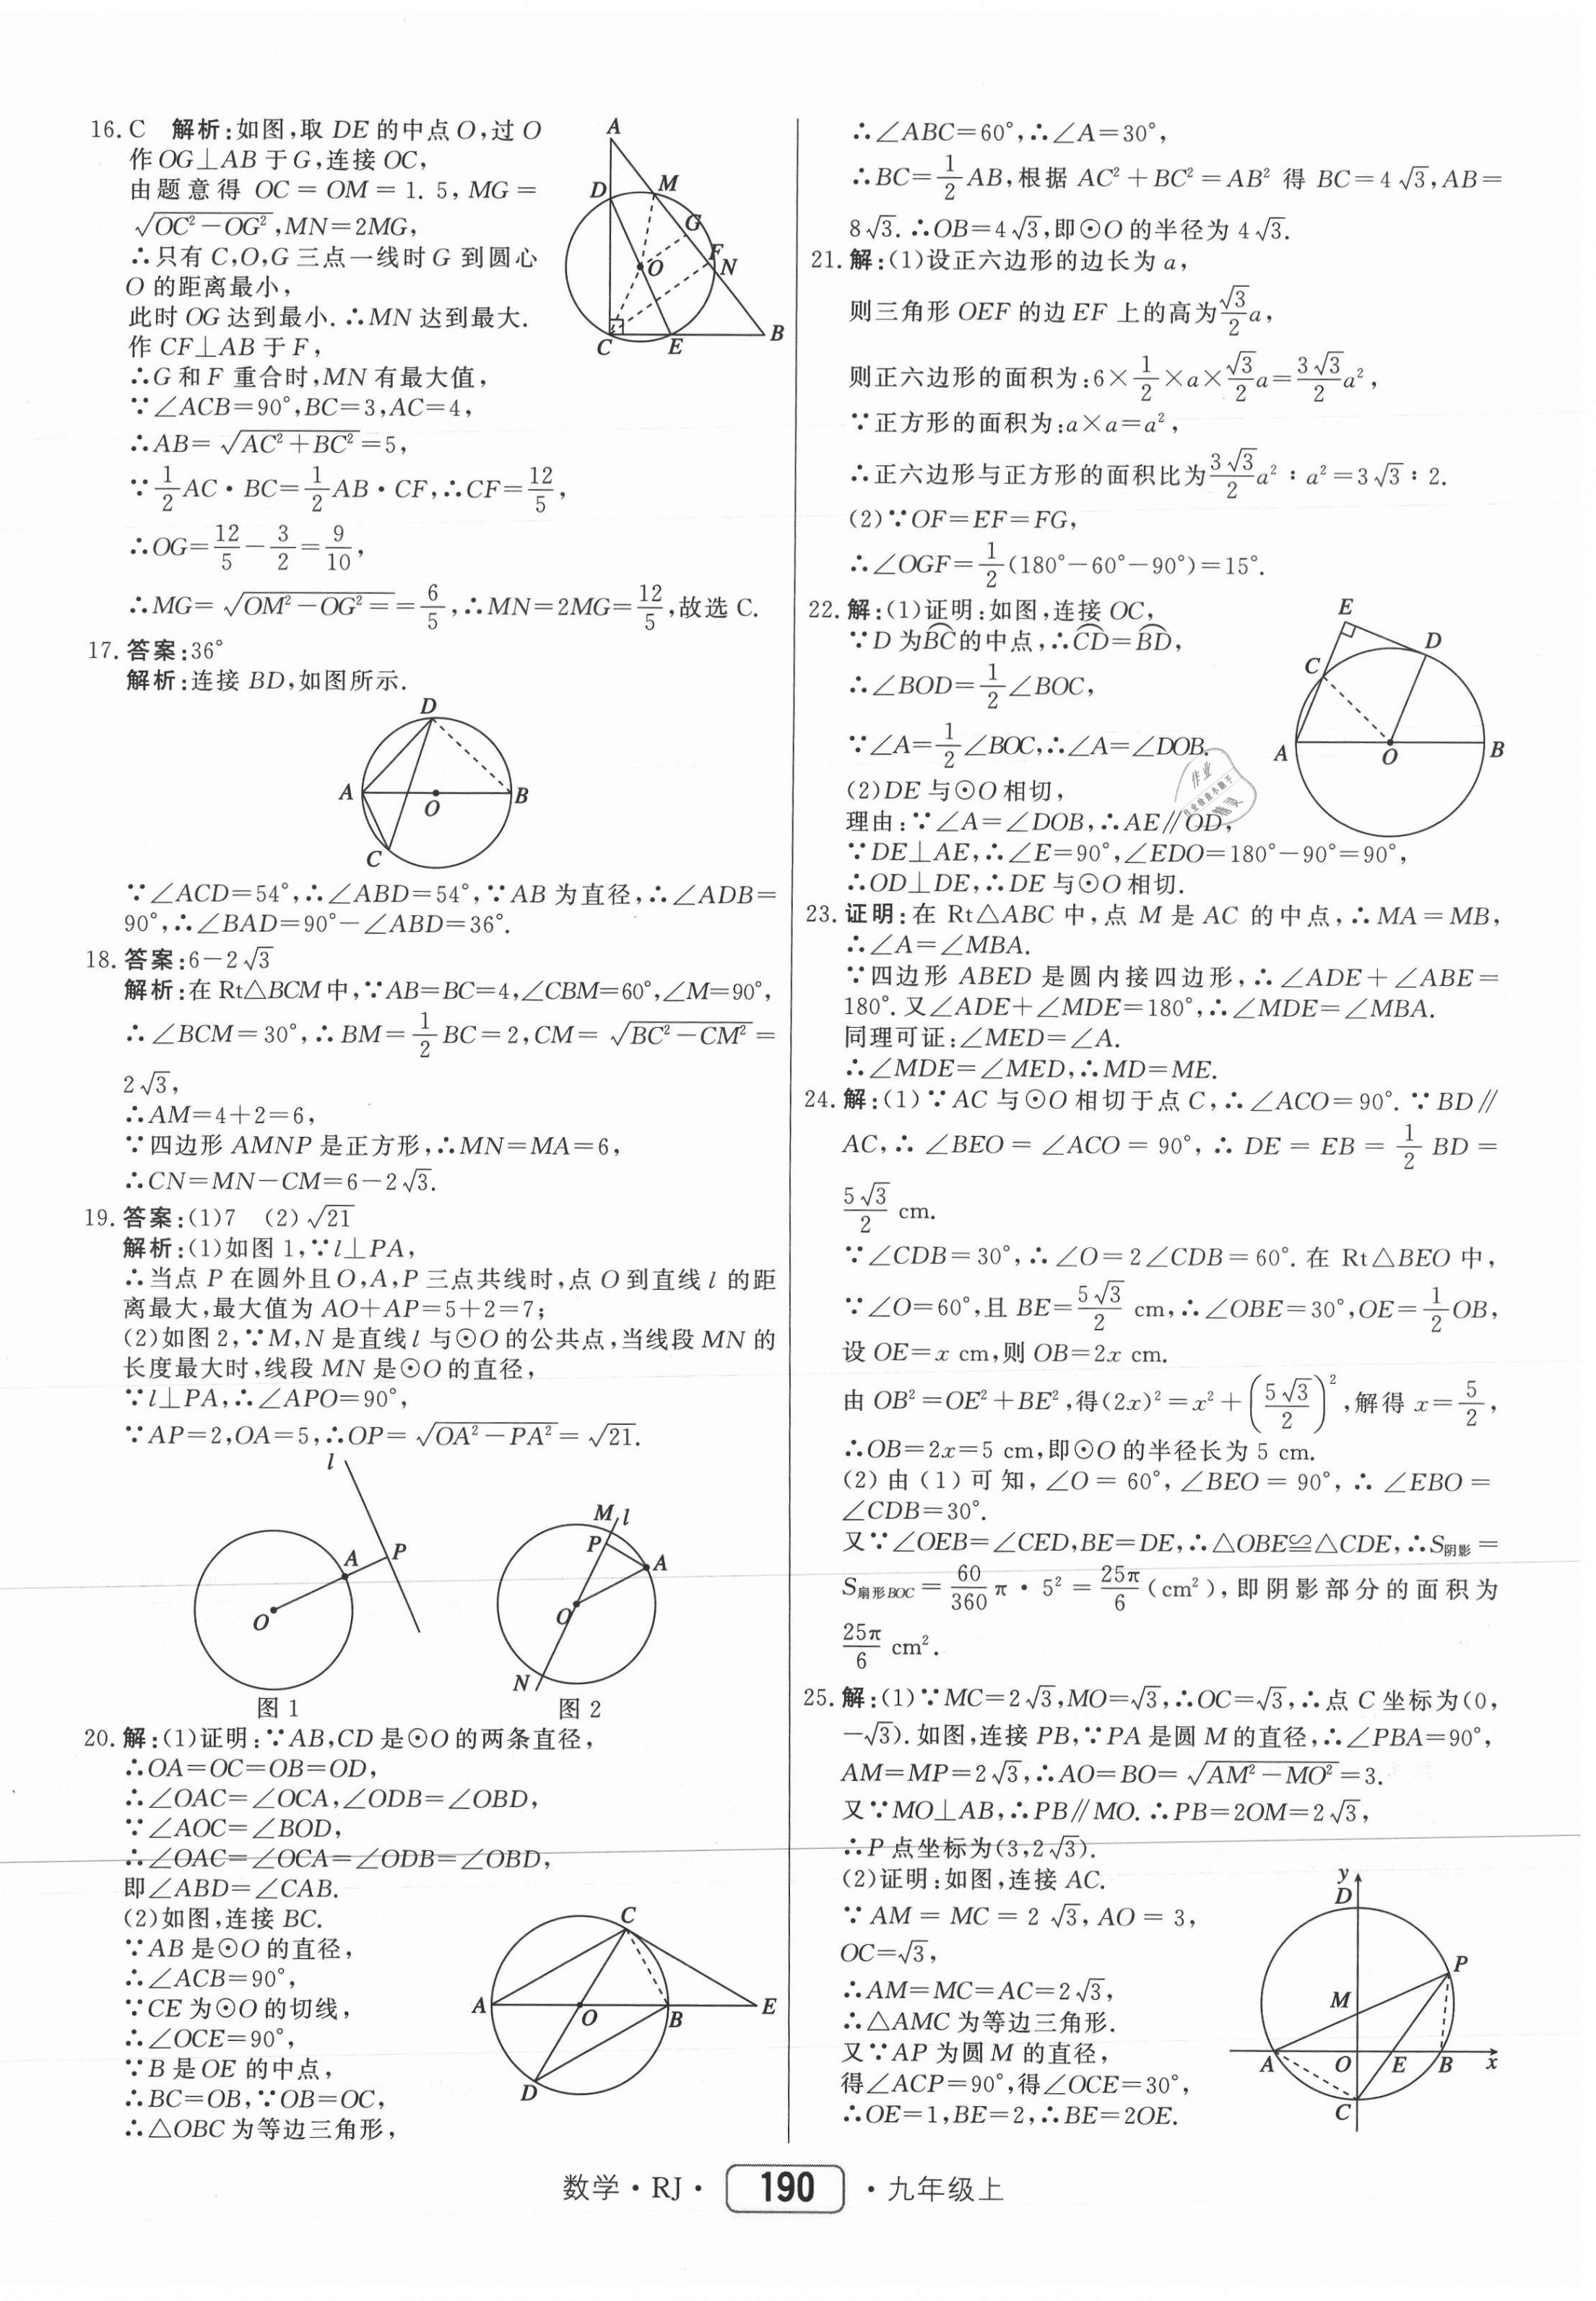 16. C　解析:如图,取 DE 的中点 O,过 O
作 OG⊥AB 于 G,连接 OC,
由题意得 OC=OM=1.5,MG=
√(OC²-OG²),MN=2MG,
∴只有 C,O,G 三点一线时 G 到圆心
O 的距离最小,
此时 OG 达到最小.∴MN 达到最大.
作 CF⊥AB 于 F,
∴G 和 F 重合时,MN 有最大值,
∵∠ACB=90°,BC=3,AC=4,
∴AB=√(AC²+BC²)=5,
∵1/2 AC·BC=1/2 AB·CF,∴CF=12/5,
∴OG=12/5-3/2=9/10,
∴MG=√(OM²-OG²=)=6/5,∴MN=2MG=12/5,故选 C.
A
D
M
G
F
N
O
C
E
B
17. 答案:36°
解析:连接 BD,如图所示.
D
A
O
B
C
∵∠ACD=54°,∴∠ABD=54°,∵AB 为直径,∴∠ADB=
90°,∴∠BAD=90°-∠ABD=36°.
18. 答案:6-2√3
解析:在 Rt△BCM 中,∵AB=BC=4,∠CBM=60°,∠M=90°,
∴∠BCM=30°,∴BM=1/2 BC=2,CM=√(BC²-CM²)=
2√3,
∴AM=4+2=6,
∵四边形 AMNP 是正方形,∴MN=MA=6,
∴CN=MN-CM=6-2√3.
19. 答案:(1)7　(2)√21
解析:(1)如图 1,∵l⊥PA,
∴当点 P 在圆外且 O,A,P 三点共线时,点 O 到直线 l 的距
离最大,最大值为 AO+AP=5+2=7;
(2)如图 2,∵M,N 是直线 l 与⊙O 的公共点,当线段 MN 的
长度最大时,线段 MN 是⊙O 的直径,
∵l⊥PA,∴∠APO=90°,
∵AP=2,OA=5,∴OP=√(OA²-PA²)=√21.
l
A
P
O
图 1
M
l
P
A
O
N
图 2
20. 解:(1)证明:∵AB,CD 是⊙O 的两条直径,
∴OA=OC=OB=OD,
∴∠OAC=∠OCA,∠ODB=∠OBD,
∵∠AOC=∠BOD,
∴∠OAC=∠OCA=∠ODB=∠OBD,
即∠ABD=∠CAB.
(2)如图,连接 BC.
∵AB 是⊙O 的直径,
∴∠ACB=90°,
∵CE 为⊙O 的切线,
∴∠OCE=90°,
∵B 是 OE 的中点,
∴BC=OB,∵OB=OC,
∴△OBC 为等边三角形,
C
A
O
B
E
D
∴∠ABC=60°,∴∠A=30°,
∴BC=1/2 AB,根据 AC²+BC²=AB² 得 BC=4√3,AB=
8√3.∴OB=4√3,即⊙O 的半径为 4√3.
21. 解:(1)设正六边形的边长为 a,
则三角形 OEF 的边 EF 上的高为√3/2 a,
则正六边形的面积为:6×1/2×a×√3/2 a=3√3/2 a²,
∵正方形的面积为:a×a=a²,
∴正六边形与正方形的面积比为3√3/2 a²∶a²=3√3∶2.
(2)∵OF=EF=FG,
∴∠OGF=1/2(180°-60°-90°)=15°.
22. 解:(1)证明:如图,连接 OC,
∵D 为B͡C的中点,∴C͡D=B͡D,
∴∠BOD=1/2∠BOC,
∵∠A=1/2∠BOC,∴∠A=∠DOB.
(2)DE 与⊙O 相切,
理由:∵∠A=∠DOB,∴AE∥OD,
∵DE⊥AE,∴∠E=90°,∠EDO=180°-90°=90°,
∴OD⊥DE,∴DE 与⊙O 相切.
E
D
C
A
O
B
作业
23. 证明:在 Rt△ABC 中,点 M 是 AC 的中点,∴MA=MB,
∴∠A=∠MBA.
∵四边形 ABED 是圆内接四边形,∴∠ADE+∠ABE=
180°.又∠ADE+∠MDE=180°,∴∠MDE=∠MBA.
同理可证:∠MED=∠A.
∴∠MDE=∠MED,∴MD=ME.
24. 解:(1)∵AC 与⊙O 相切于点 C,∴∠ACO=90°.∵BD∥
AC,∴∠BEO=∠ACO=90°,∴DE=EB=1/2 BD=
5√3/2 cm.
∵∠CDB=30°,∴∠O=2∠CDB=60°.在 Rt△BEO 中,
∵∠O=60°,且 BE=5√3/2 cm,∴∠OBE=30°,OE=1/2 OB,
设 OE=x cm,则 OB=2x cm.
由 OB²=OE²+BE²,得(2x)²=x²+(5√3/2)²,解得 x=5/2,
∴OB=2x=5 cm,即⊙O 的半径长为 5 cm.
(2)由(1)可知,∠O=60°,∠BEO=90°,∴∠EBO=
∠CDB=30°.
又∵∠OEB=∠CED,BE=DE,∴△OBE≌△CDE,∴S阴影=
S扇形BOC=60/360 π·5²=25π/6(cm²),即阴影部分的面积为
25π/6 cm².
25. 解:(1)∵MC=2√3,MO=√3,∴OC=√3,∴点 C 坐标为(0,
-√3).如图,连接 PB,∵PA 是圆 M 的直径,∴∠PBA=90°,
AM=MP=2√3,∴AO=BO=√(AM²-MO²)=3.
又∵MO⊥AB,∴PB∥MO.∴PB=2OM=2√3,
∴P 点坐标为(3,2√3).
(2)证明:如图,连接 AC.
∵AM=MC=2√3,AO=3,
OC=√3,
∴AM=MC=AC=2√3,
∴△AMC 为等边三角形.
又∵AP 为圆 M 的直径,
得∠ACP=90°,得∠OCE=30°,
∴OE=1,BE=2,∴BE=2OE.
y
D
P
M
A
O
E
B
x
C
数学·RJ· 190 ·九年级上